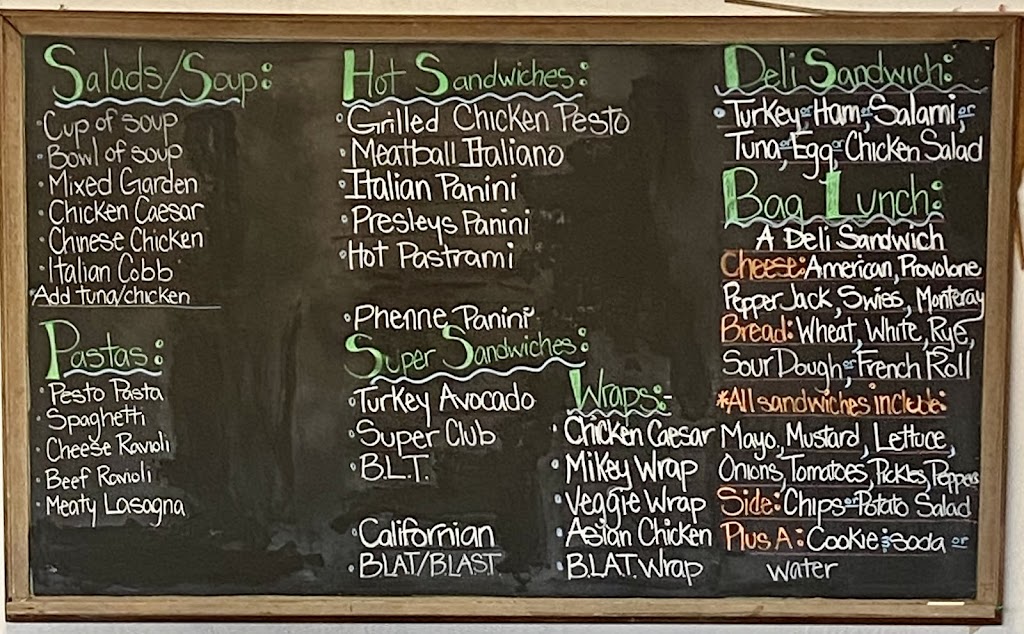 Salads/Soup:
· Cup of soup
· Bowl of soup
· Mixed Garden
· Chicken Caesar
· Chinese Chicken
· Italian Cobb
*Add tuna/chicken
Pastas:
· Pesto Pasta
· Spaghetti
· Cheese Ravioli
· Beef Ravioli
· Meaty Lasagna
Hot Sandwiches:
· Grilled Chicken Pesto
· Meatball Italiano
· Italian Panini
· Presleys Panini
· Hot Pastrami
· Phenne Panini
Super Sandwiches:
· Turkey Avocado
· Super Club
· B.L.T.
· Californian
· BLAT/BLAST
Wraps:-
· Chicken Caesar
· Mikey Wrap
· Veggie Wrap
· Asian Chicken
· B.L.A.T. Wrap
Deli Sandwich:
· Turkey or Ham or Salami, or
Tuna, or Egg or Chicken Salad
Bag Lunch:
A Deli Sandwich
Cheese: American, Provolone
Pepper Jack, Swiss, Monteray
Bread: Wheat, White, Rye,
Sour Dough or French Roll
*All sandwiches include:
Mayo, Mustard, Lettuce,
Onions, Tomatoes, Pickles, Peppers
Side: Chips or Potato Salad
Plus A: Cookie & soda or
water